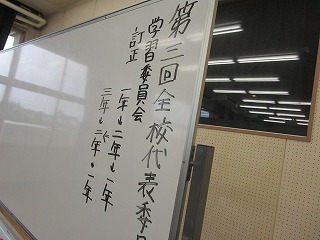 第三回全校代表委員
学習委員会
訂正
一年→二年→一年
三年→二年→一年